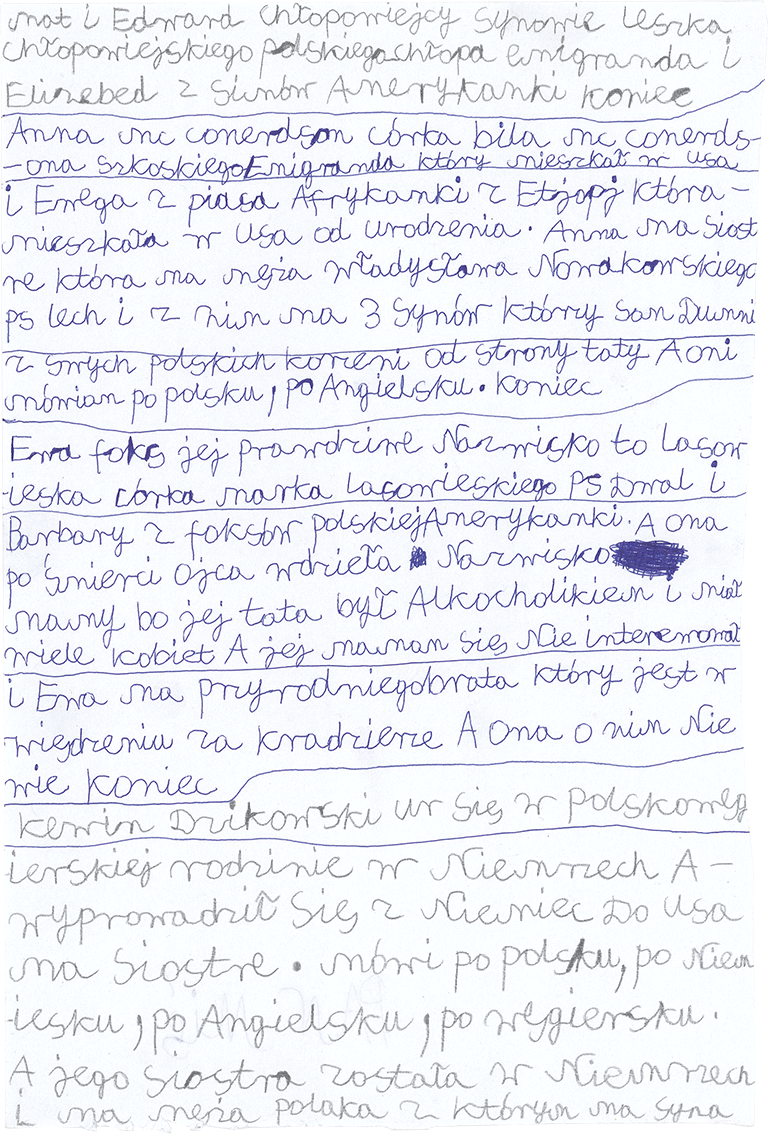 mat i Edward Chłopowiejcy Synowie Leszka
Chłopowiejskiego polskiego chłopa emigranda i
Elizebed z Siunów Amerykanki koniec
Anna mc conerdson córka bila mc conerds-
-ona szkoskiego Emigranda który mieszkał w usa
i Enega z piasa Afrykanki z Etjopj która-
mieszkała w Usa od urodzenia. Anna ma Siost
re która ma męża władysława Nowakowskiego
ps lech i z nim ma 3 Synów którzy som Dumni
z swych polskich korzeni od strony taty A oni
mówiom po polsku, po Angielsku. koniec
Ewa foks jej prawdziwe Nazwisko to Lasow
-ieska córka marka lasowieskiego PS Dwal i
Barbary z foksów polskiej Amerykanki. A ona
po śmierci Ojca wdzieła Nazwisko
mamy bo jej tata był Alkocholikiem i miał
wiele kobiet A jej mamom się Nie interemował
i Ewa ma przyrodniego brata który jest w
więdzeniu za kradzierze A Ona o nim Nie
wie koniec
Kewin Dzikowski ur się w Polskowęg
ierskiej rodzinie w Niemrzech A-
wyprowadził się z Niemiec Do Usa
ma Siostre. mówi po polsku, po Niem
-iesku, po Angielsku, po węgiersku.
A jego siostra została w Niemrzech
i ma męża polaka z którym ma syna